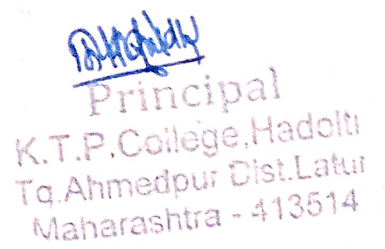 Principal
K.T.P.College,Hadolti
Tq.Ahmedpur Dist.Latur
Maharashtra - 413514